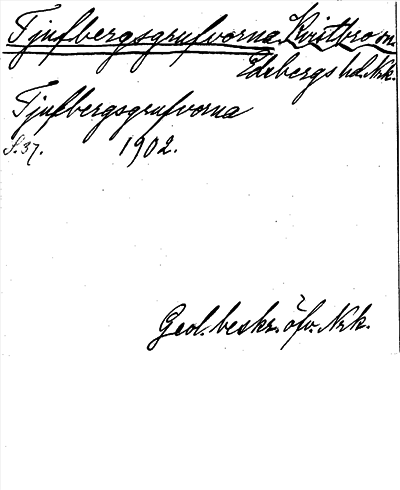 Tjufbergsgrufvorna Kvistbro sn.
Edsbergs hd. Nrk.
Tjufbergsgrufvorna
S. 37. 1902.
Geol. beskr. öfv. Nrk.